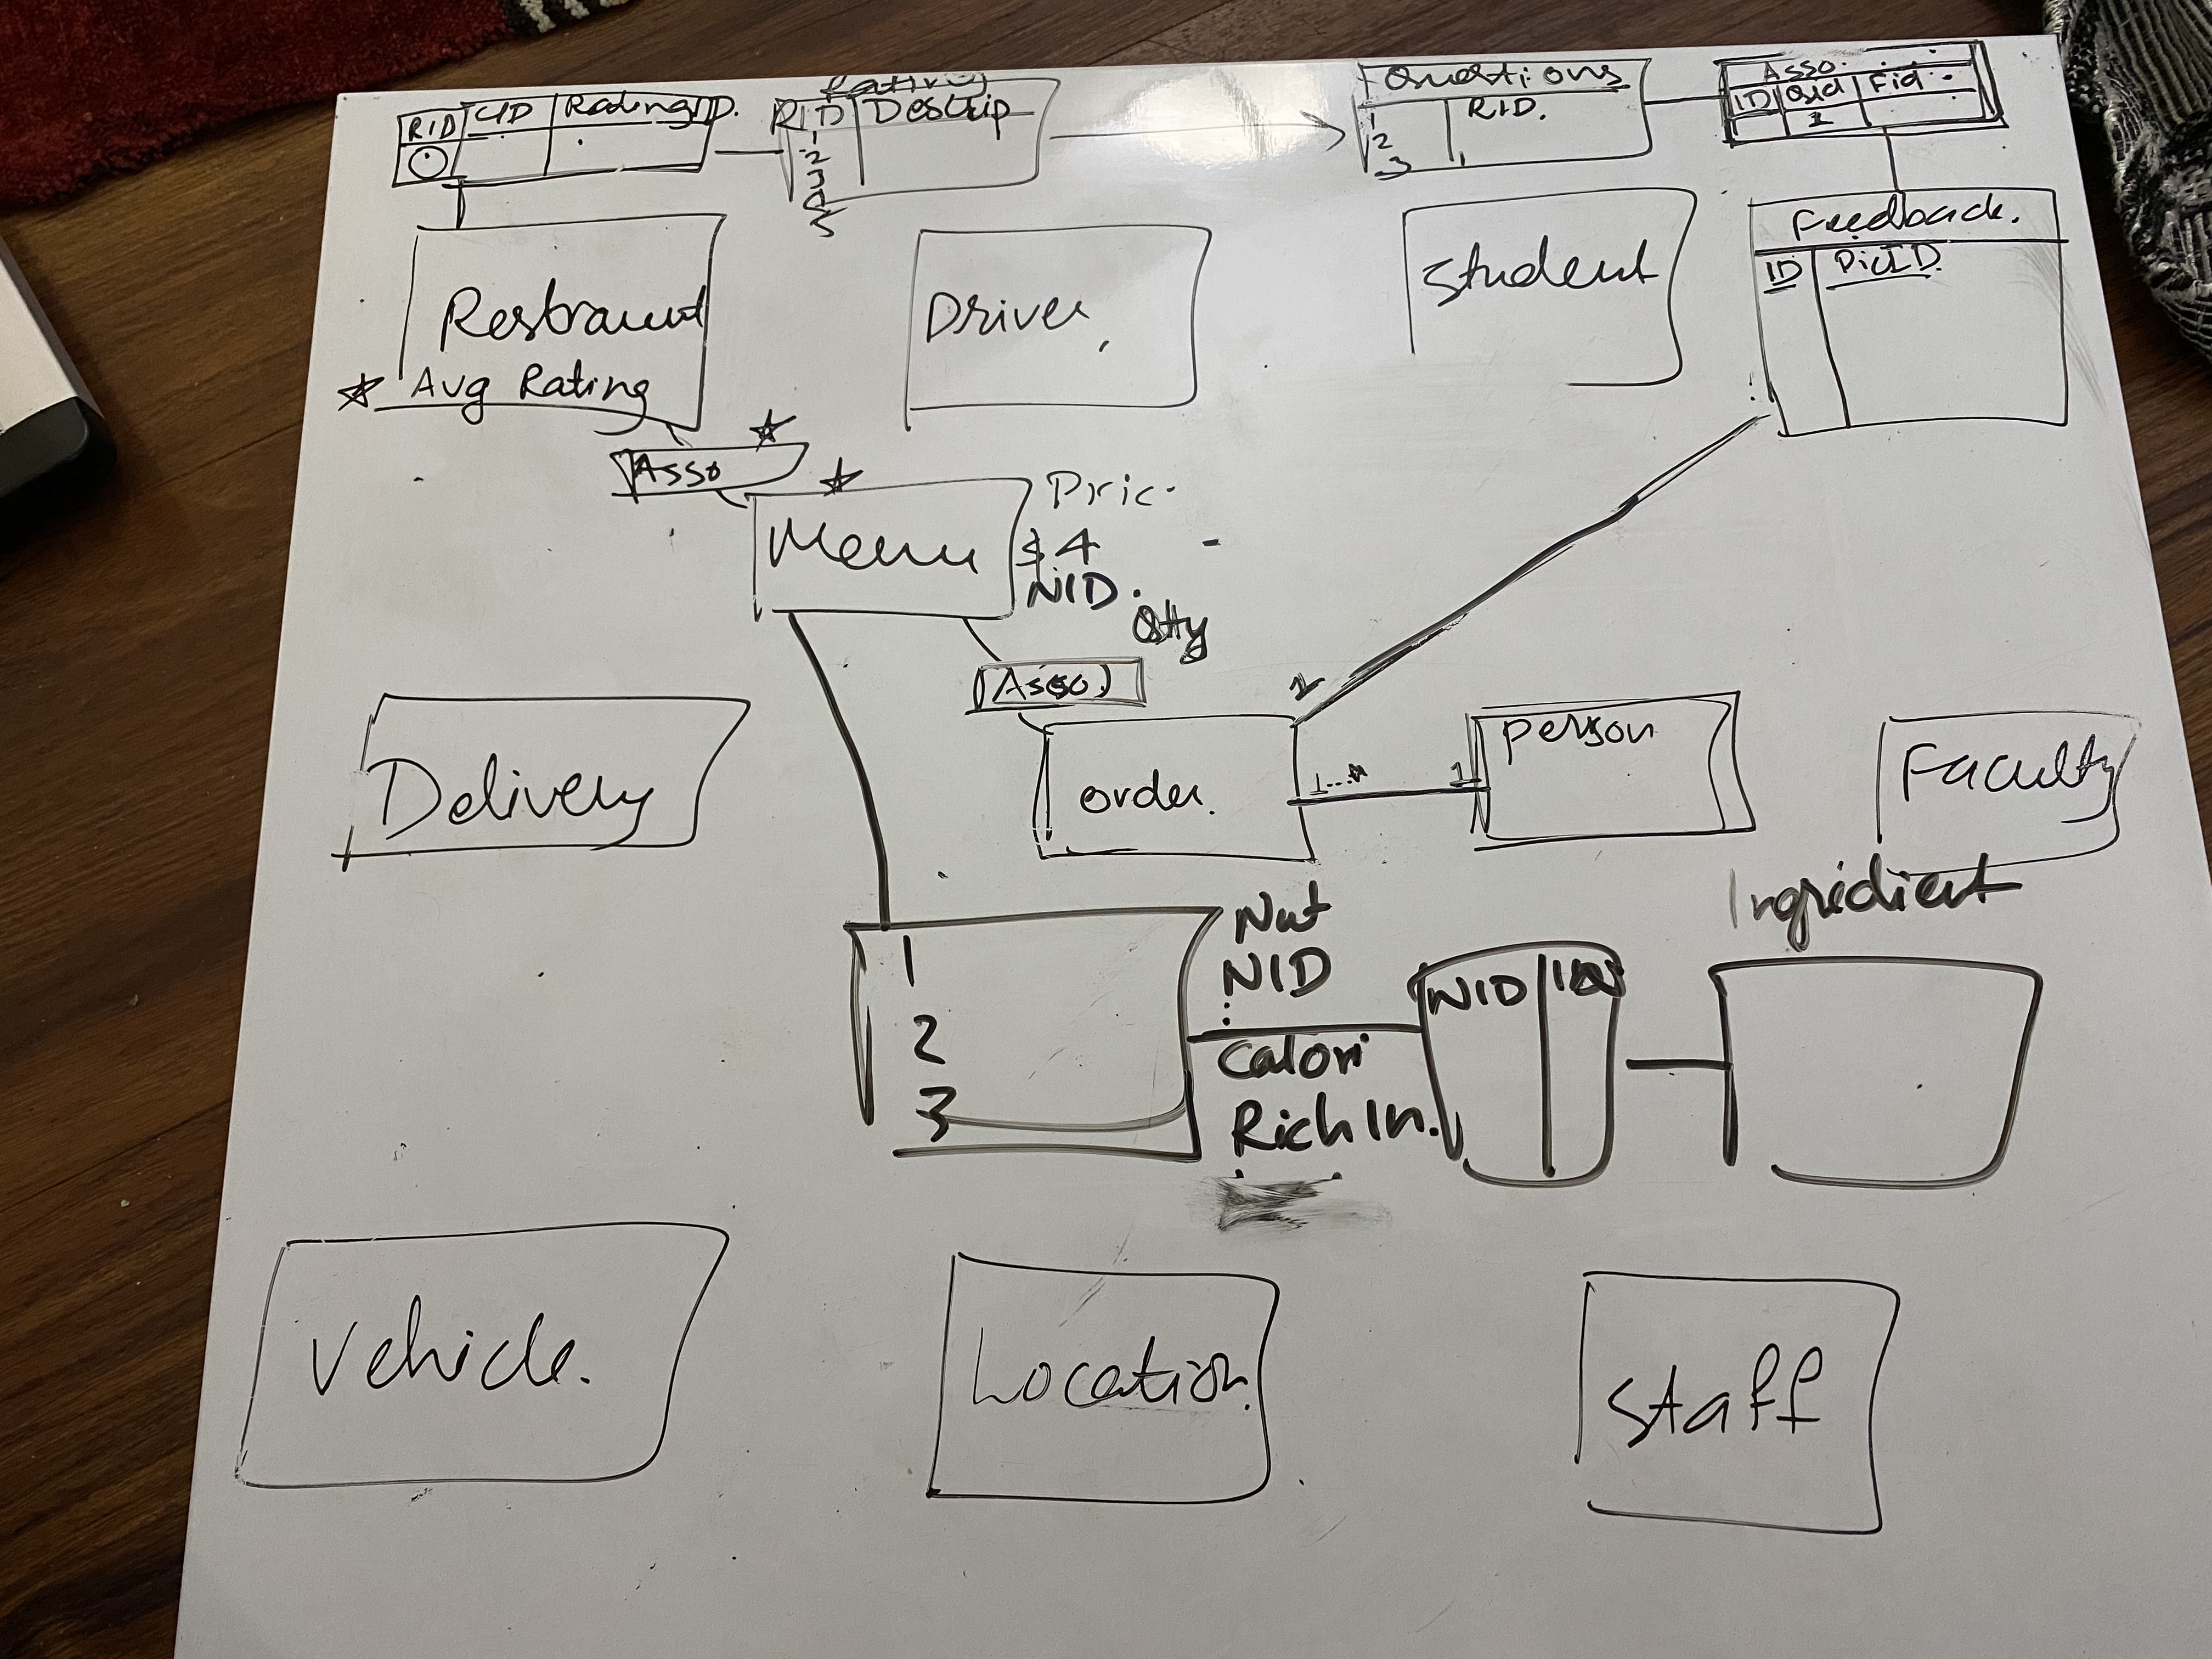 RID CID RatingID.
Rating
RID Descrip
1
2
3
4
5
Questions
RID.
1
2
3
Asso.
ID Qid Fid
1
Restraunt
★ Avg Rating
Driver
Student
Feedback.
ID PicID
Asso
Menu
Pric
$4
NID.
Qty
Asso
1
Delivery
order.
1...*
1
person
Faculty
1
2
3
Nut
NID
Calori
Rich In.
NID
Ingridient
Vehicle.
Location
Staff